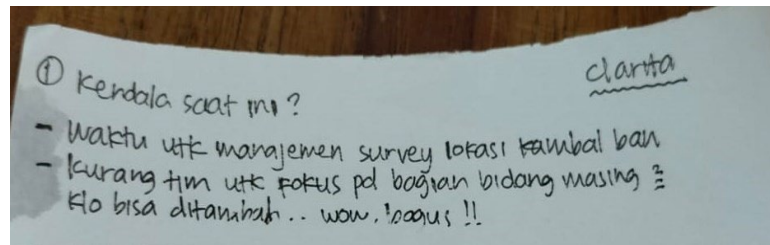 Clarita
① Kendala saat ini?
- Waktu utk manajemen survey lokasi tambal ban
- Kurang tim utk fokus pd bagian bidang masing ²
Klo bisa ditambah.. wow, bagus !!